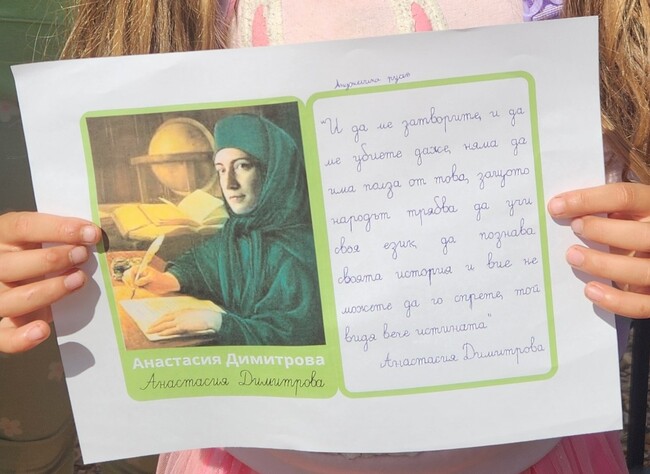 "И да ме затворите, и да
ме убиете даже, няма да
има полза от това, защото
народът трябва да учи
своя език, да познава
своята история и вие не
можете да го спрете, той
видя вече истината"
Анастасия Димитрова
Анастасия Димитрова
Анастасия Димитрова